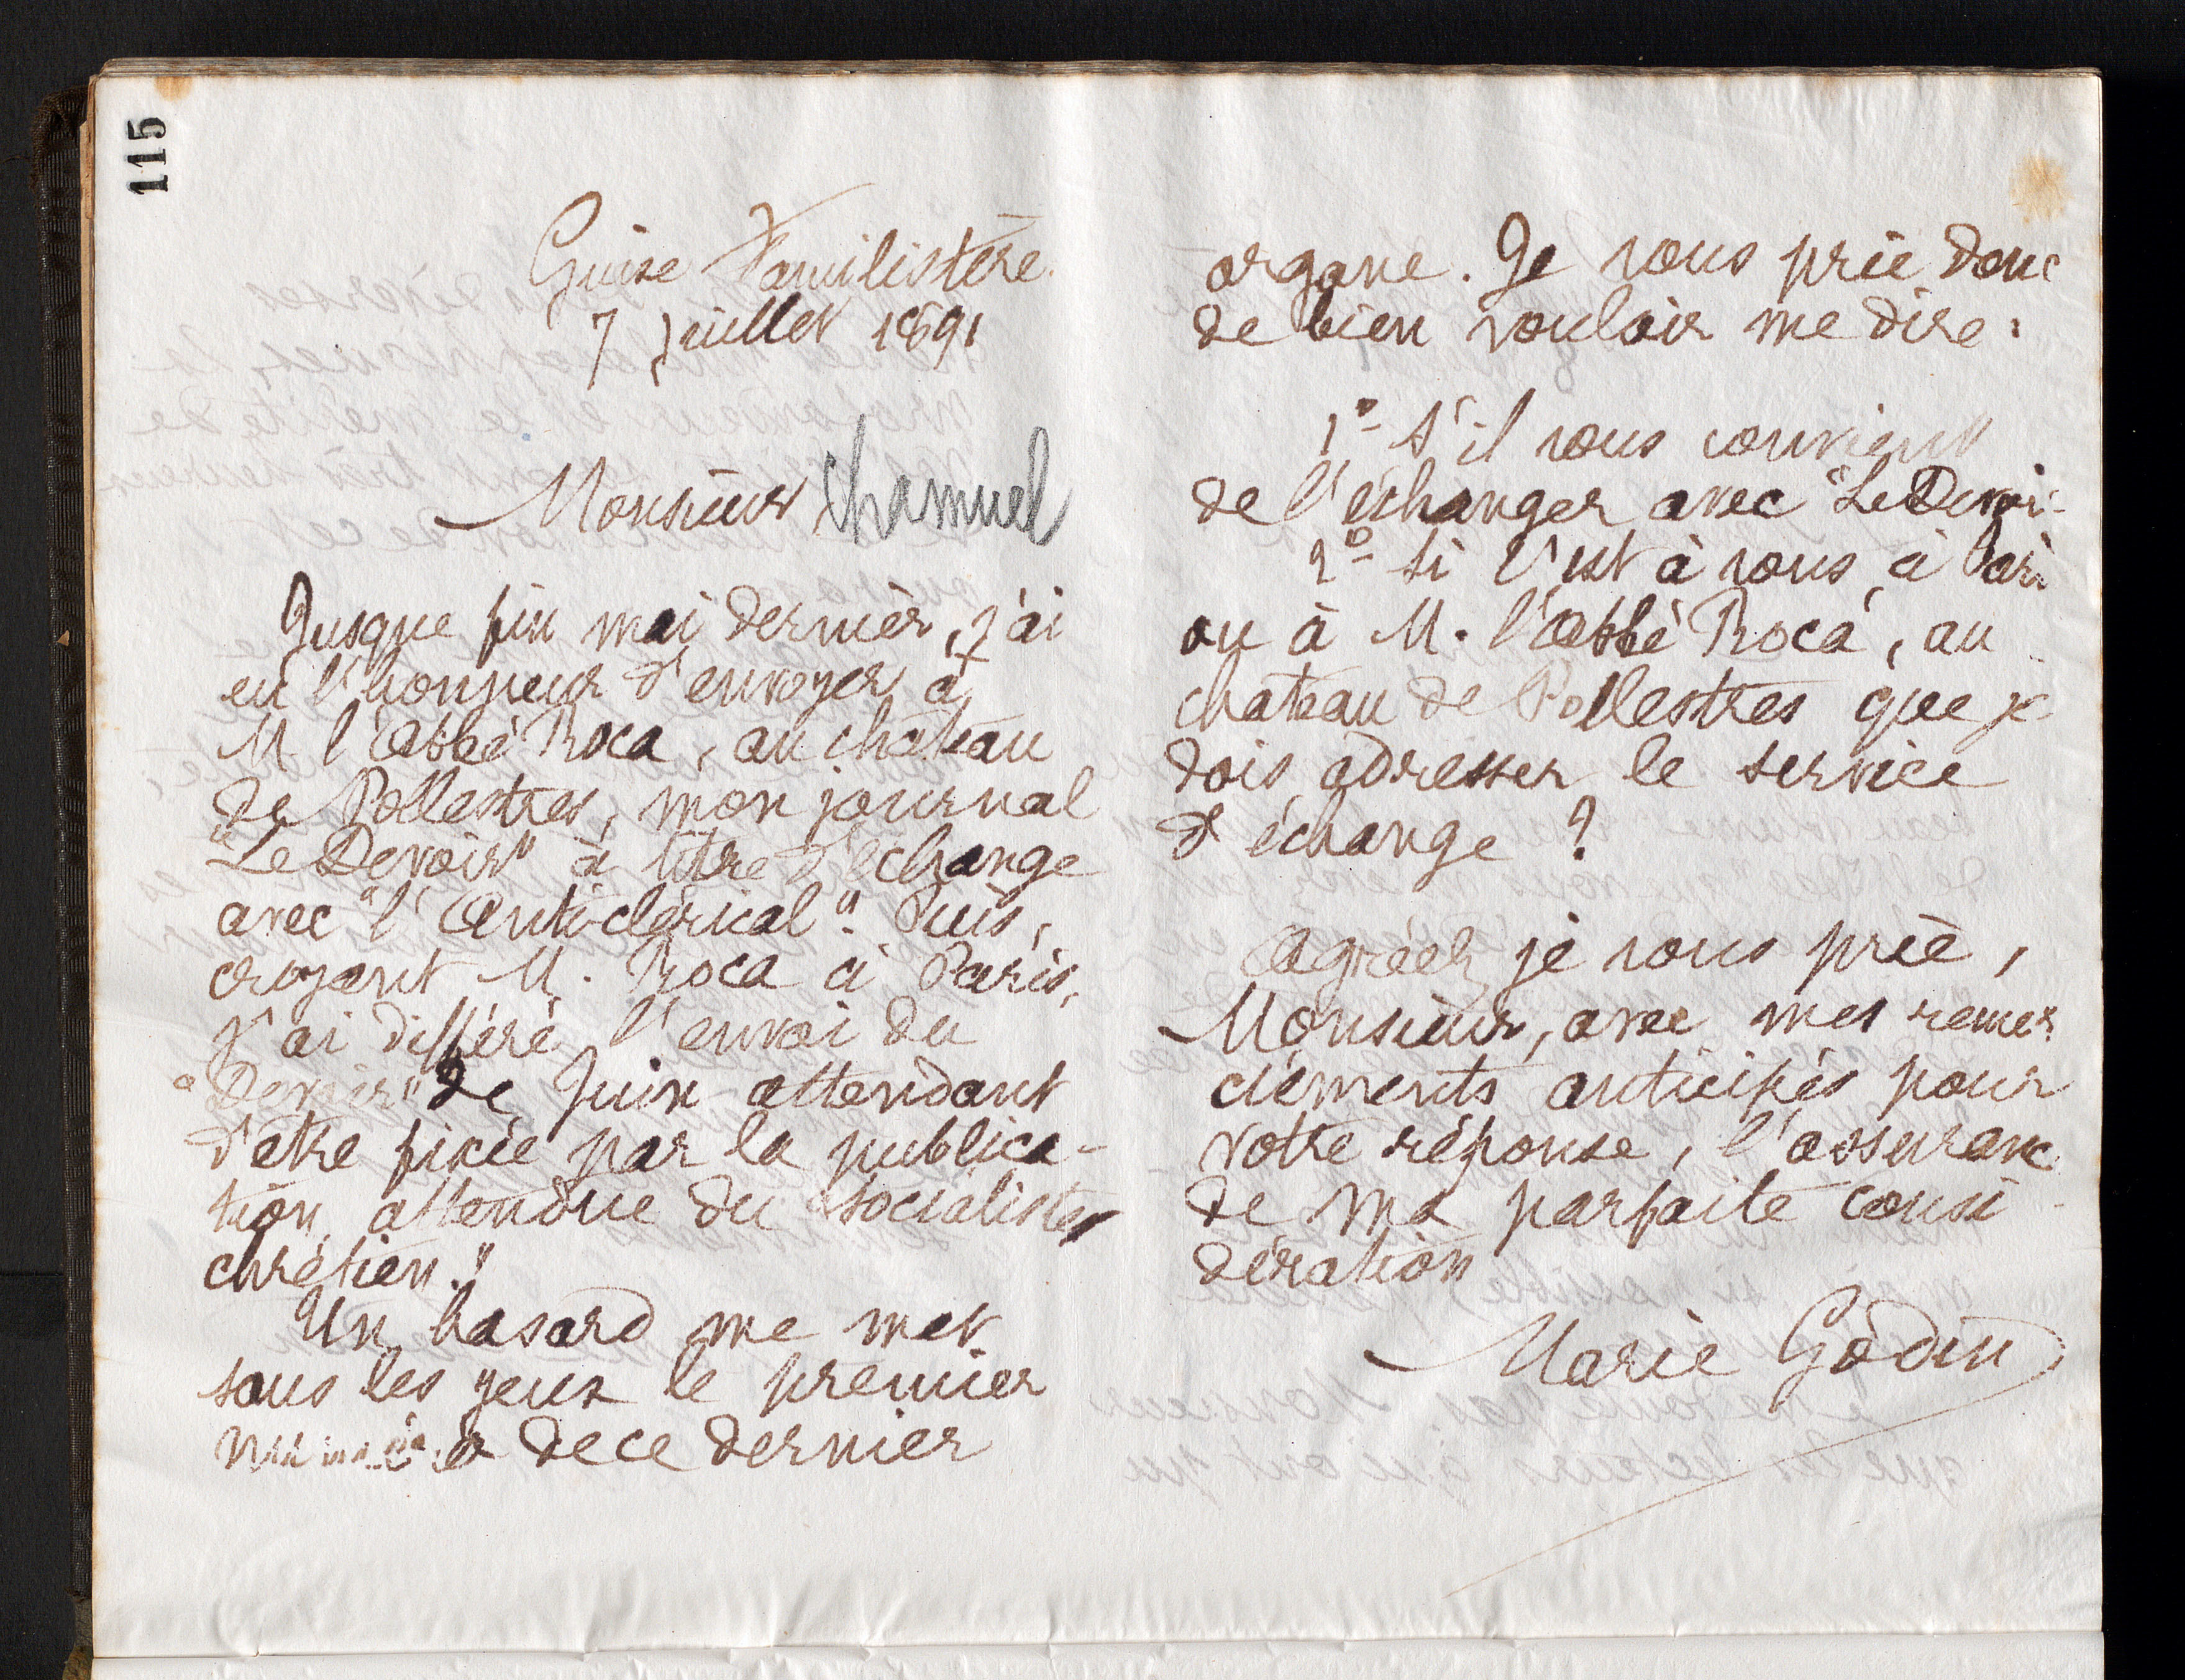 115
Guise Familistère
7 Juillet 1891
Monsieur Chamuel
Jusque fin mai dernier, j'ai
eu l'honneur d'envoyer à
M l'abbé Roca, au château
de Pollestres, mon journal
"Le Devoir" à titre d'échange
avec "l'Anti-clérical". Puis,
croyant M. Roca à Paris,
j'ai différé l'envoi du
"Devoir" de Juin attendant
d'être fixée par la publica-
tion attendue du "socialiste
chrétien."
Un hasard me met
sous les yeux le premier
numéro de ce dernier
organe. Je vous prie donc
de bien vouloir me dire:
1º- S'il vous convient
de l'échanger avec "Le Devoi
2º- Si c'est à vous, à Pari
ou à M. l'abbé Roca, au
chateau de Pollestres que je
dois adresser le service
d'échange ?
Agréez je vous prie,
Monsieur, avec mes remer
ciements anticipés pour
votre réponse, l'assuranc
de ma parfaite consi
dération
Marie Godin